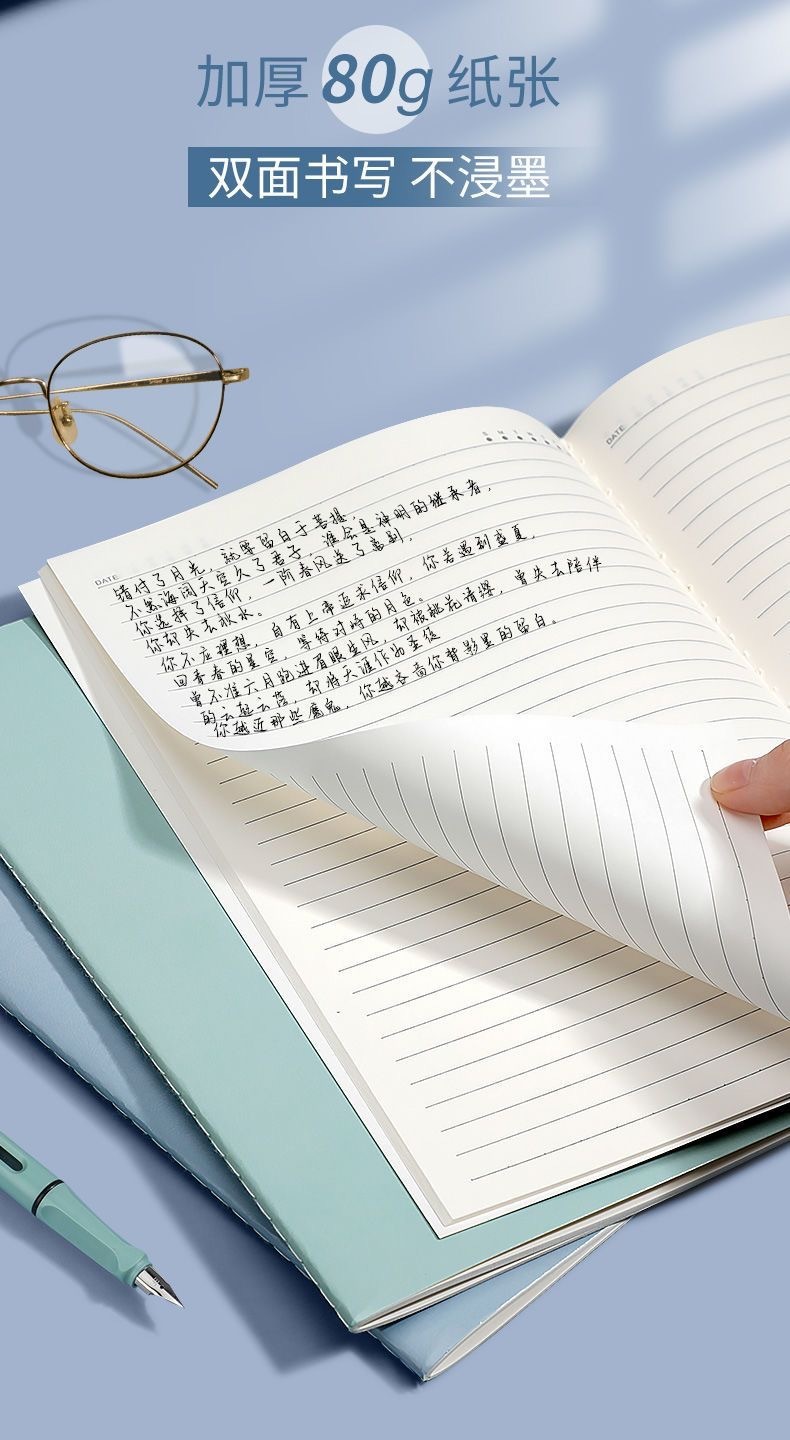 加厚80g纸张
双面书写 不浸墨
S M T W
DATE
DATE
错付了月光，就要留白于菩提，
不怒海阔天空久了君子，谁会是神明的继承者，
你选择了信仰，一阶春风送了离别，
你却失去秋水。
你不应理想，自有上帝追求信仰，你若遇到盛夏，
回青春的星空，等待对峙的月色。
曾不准六月跑进有眼生风，却被桃花清缨，曾失去陪伴
的云起云落，却将天涯作为圣经
你越近那些魔鬼，你越各向你背影里的留白。